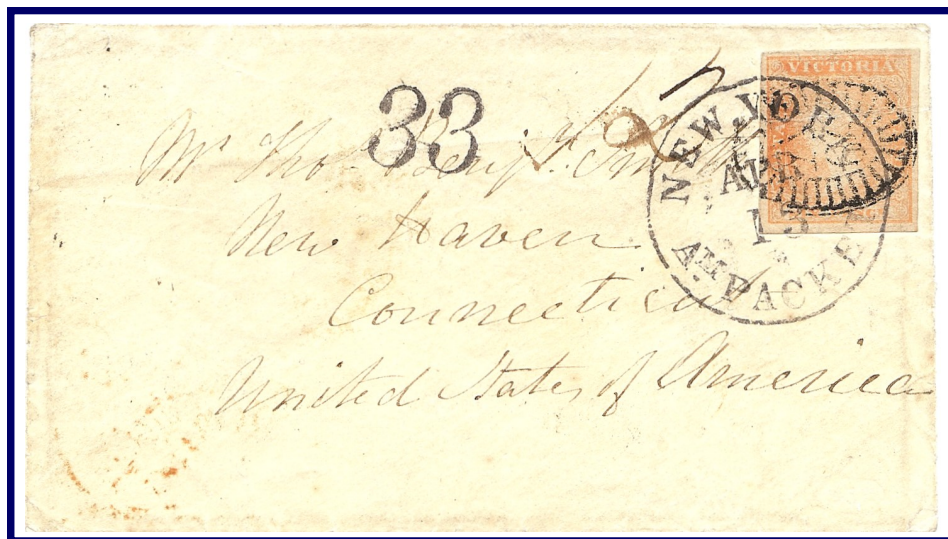 VICTORIA
33
NEW-YORK
AUG
13
AM. PACKET
Mr Thos Benjn. Smith
New Haven
Connecticut
United States of America